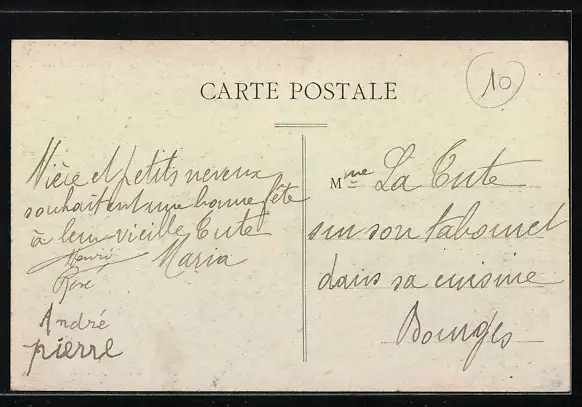 CARTE POSTALE
10
Nièce et petits neveux
souhaitent une bonne fête
à leur vieille Tute
Henri Maria
Rose
André
pierre
Mme La Tute
sur son tabouret
dans sa cuisine
Bourges